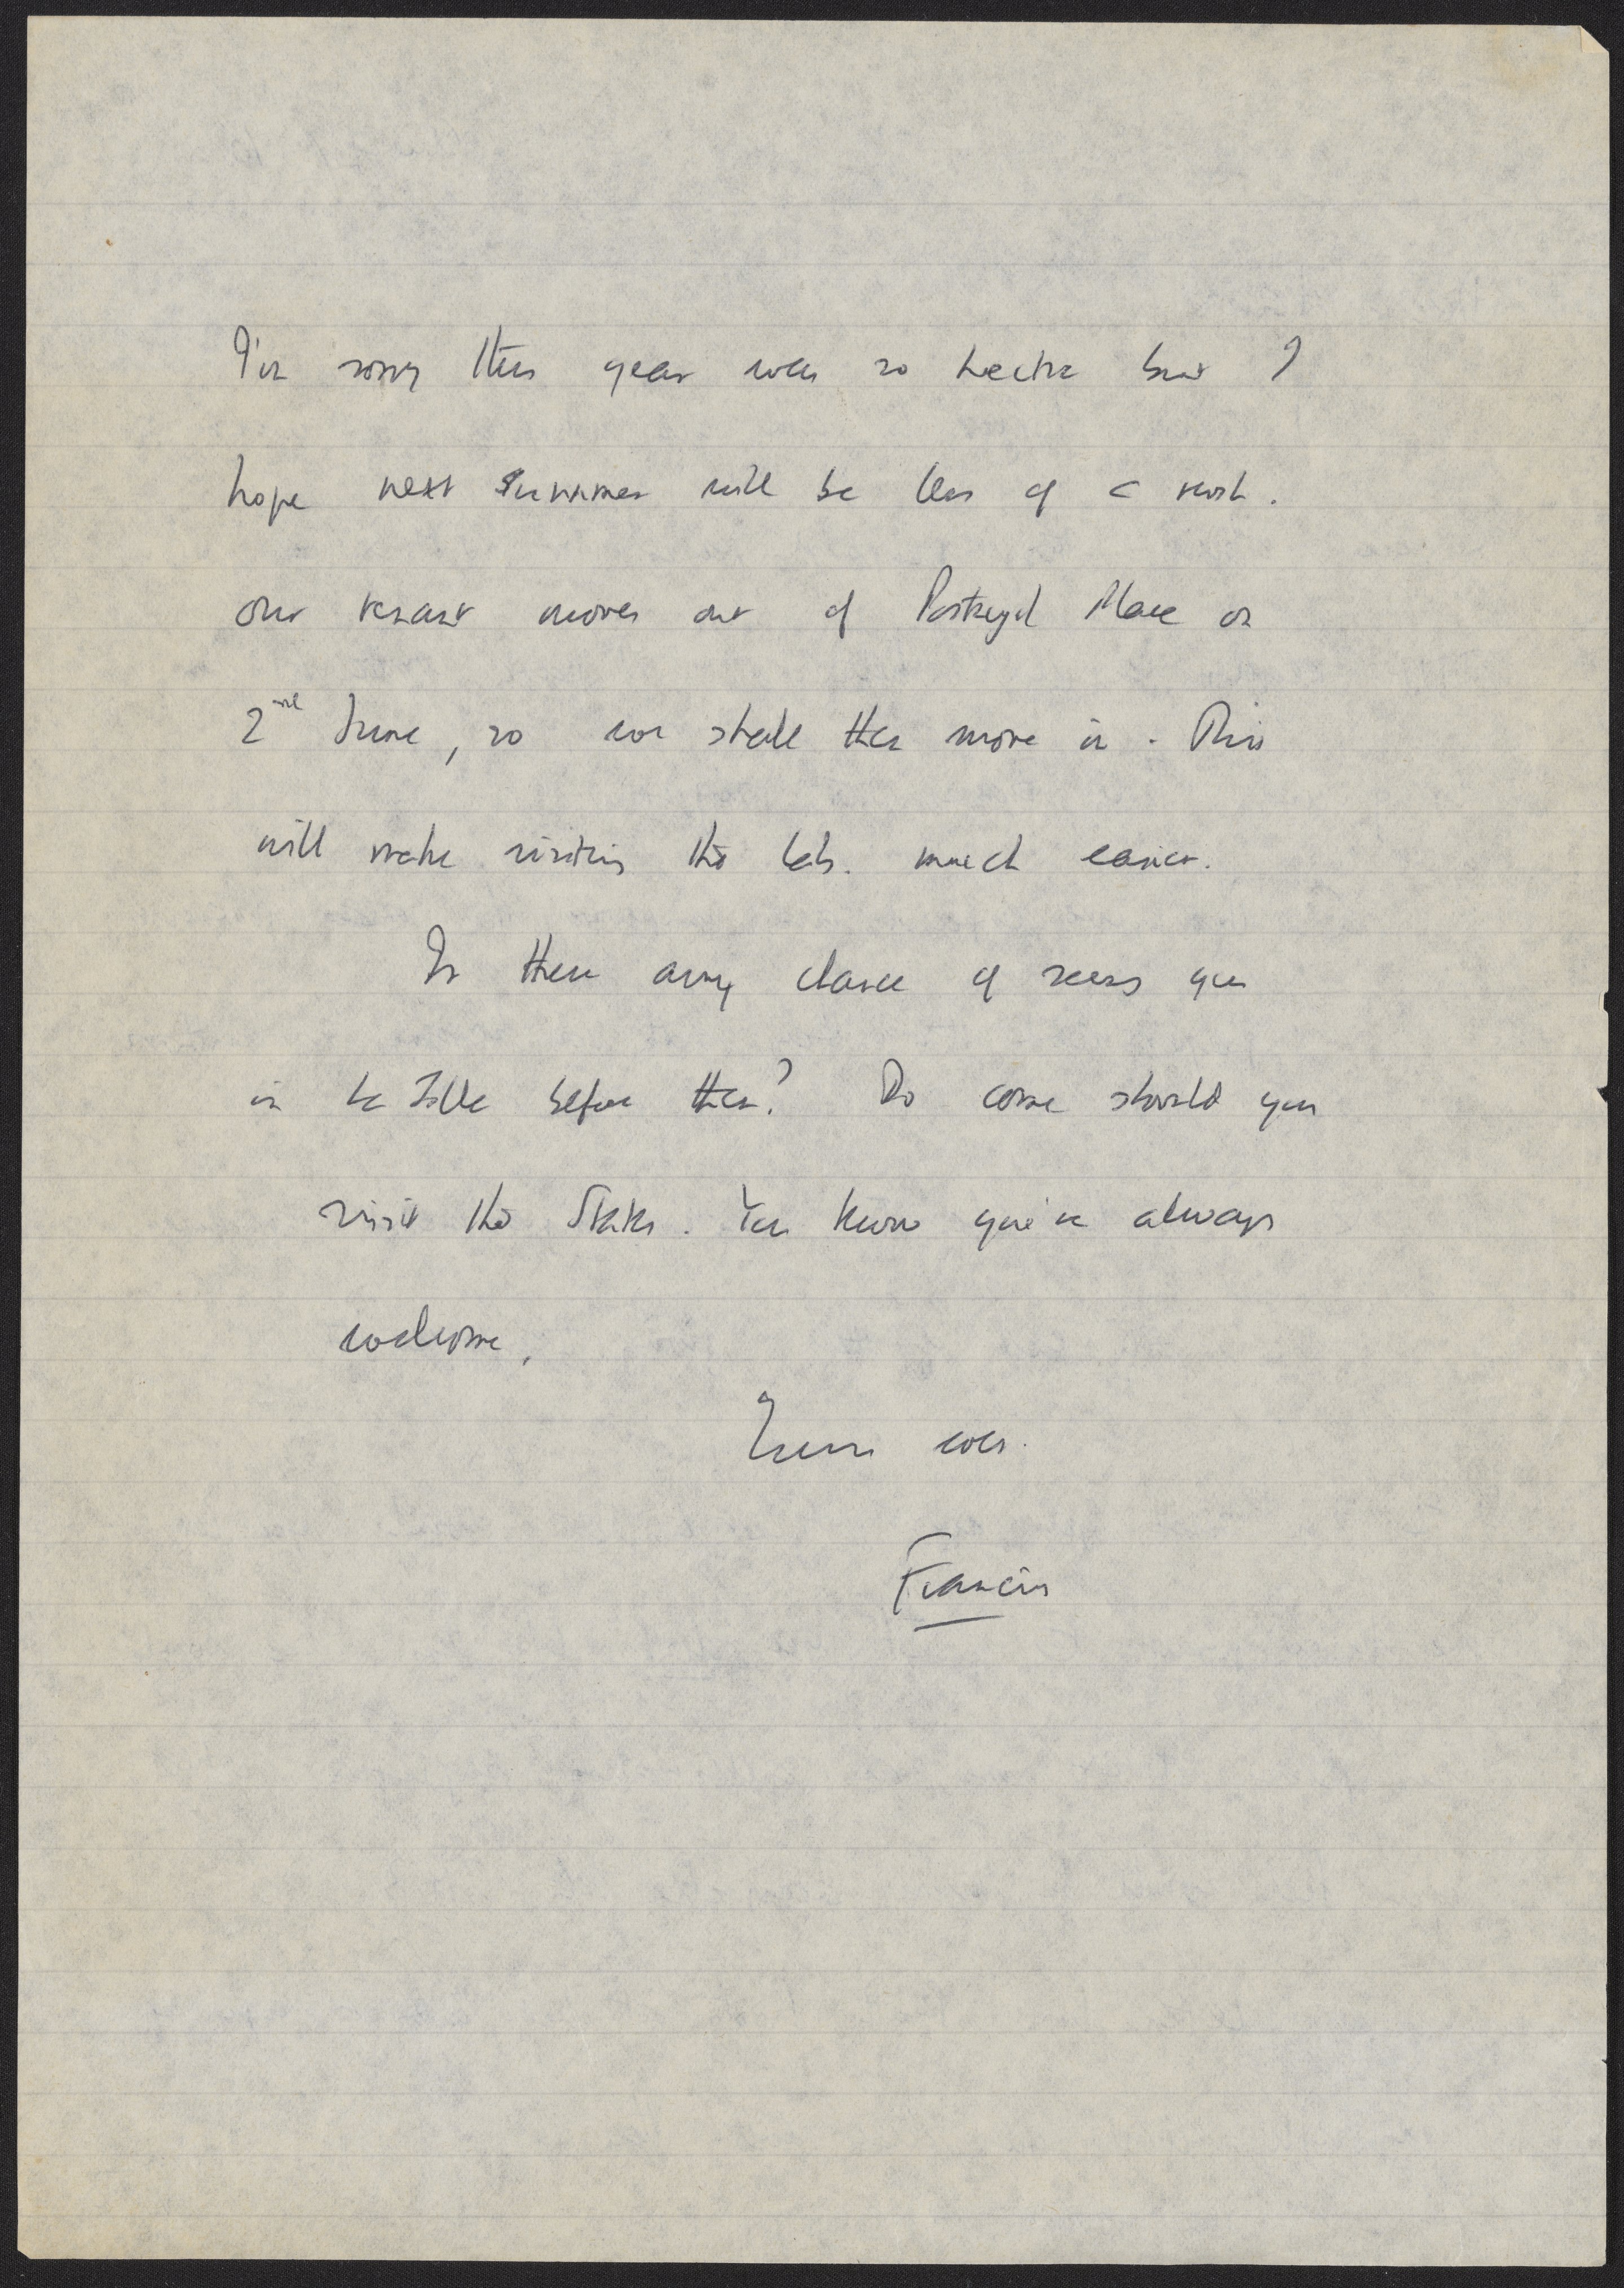 I'm sorry this year was so hectic but I
hope next summer will be less of a rush.
Our tenant moves out of Portugal Place on
2nd June, so we shall then move in. This
will make visiting the lab. much easier.
Is there any chance of seeing you
in La Jolla before then? Do come should you
visit the States. You know you're always
welcome.
Yours ever.
Francis